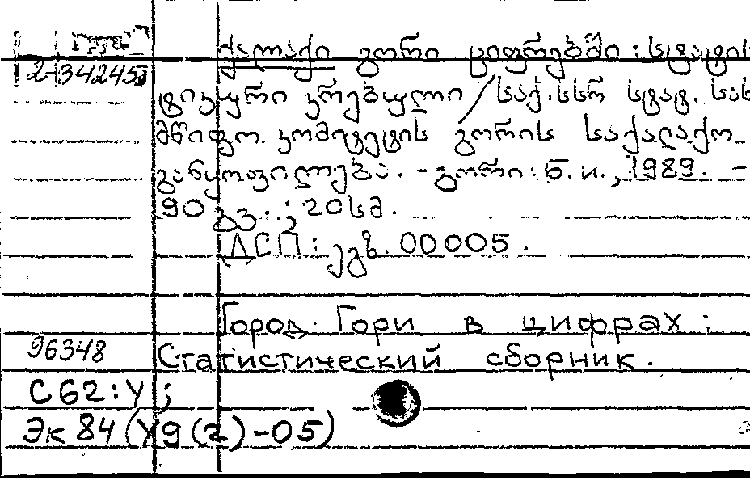 2-34245
ქალაქი გორი ციფრებში : სტატის
ტიკური კრებული / საქ. სსრ სტატ. სახ
მწიფო. კომიტეტის გორის საქალაქო
განყოფილება. - გორი : Б. и., 1989. -
90 გვ. ; 20 სმ.
ДСП : ეგზ. 00005.
Город Гори в цифрах :
96348
Статистический сборник.
С62:У ;
Эк 84 (У9(2)-05)